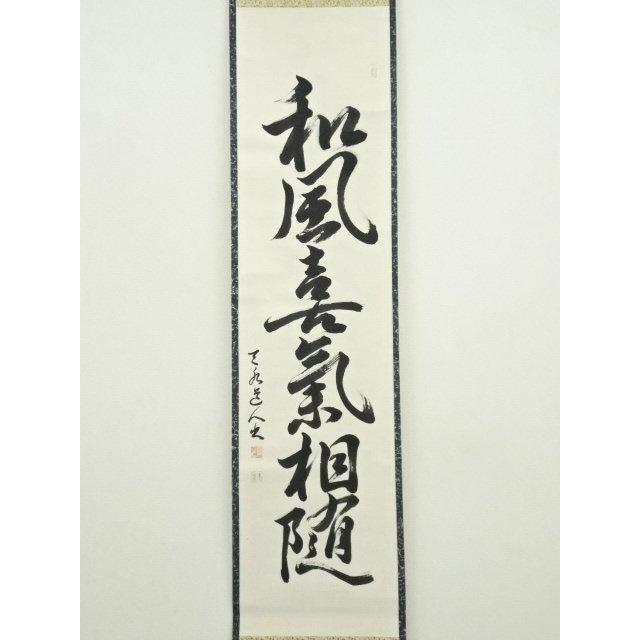 和風喜氣相随